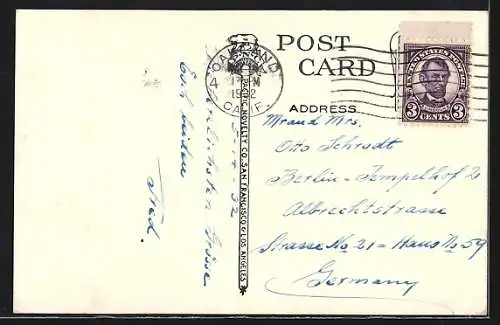 POST
CARD
ADDRESS
OAKLAND
1932
CALIF.
4
UNITED STATES POSTAGE
3 CENTS 3
PACIFIC NOVELTY CO. SAN FRANCISCO & LOS ANGELES
Mr and Mrs.
Otto Schrodt
Berlin-Tempelhof 2
Albrechtstrasse
Strasse No 21 - Haus No 59
Germany
Grüsse
Euch beiden
Fred.